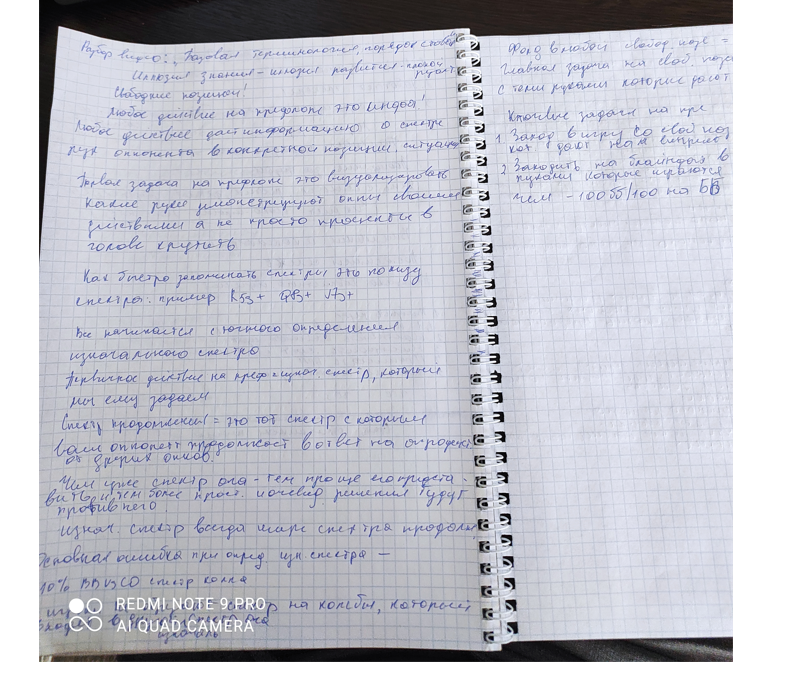 Разбор видео: „Базовая терминология, порядок
Иллюзия знания - иллюзия развития - плохой
Свободные позиции!
Любое действие на префлопе это
Любое действие даст информацию о спектре
рук оппонента в конкретной позиции, ситуации
Первая задача на префлопе это визуализировать
какие руки демонстрируют оппы своими
действиями а не просто проценты в
голове крутить
Как быстро запоминать спектры это по низу
спектра. пример K5s+ Q8s+ J7s+
Все начинается с точного определения
изначального спектра
Первичное действие на преф = изнач спектр, который
мы ему задаем
Спектр продолжения = это тот спектр с которым
ваш оппонент продолжает в ответ на
от других оппов.
Чем уже спектр опа - тем проще его представ-
вить и тем более прост. и очевид решения будут
против него
изнач. спектр всегда шире спектра продолж
Основная ошибка при опред. изн спектра —
10% BB vs CO спектр колла
спектр на колбы, который
REDMI NOTE 9 PRO
AI QUAD CAMERA
Фолд в любой свобод. позе =
Главная задача на своб. поза
с теми руками которые дают
Ключевые задачи на пре
1 Заход в игру со своб поз
кот дают нам выигрыш
2 Заходить на блайндах в
руками которые играются
чем -100бб/100 на ББ